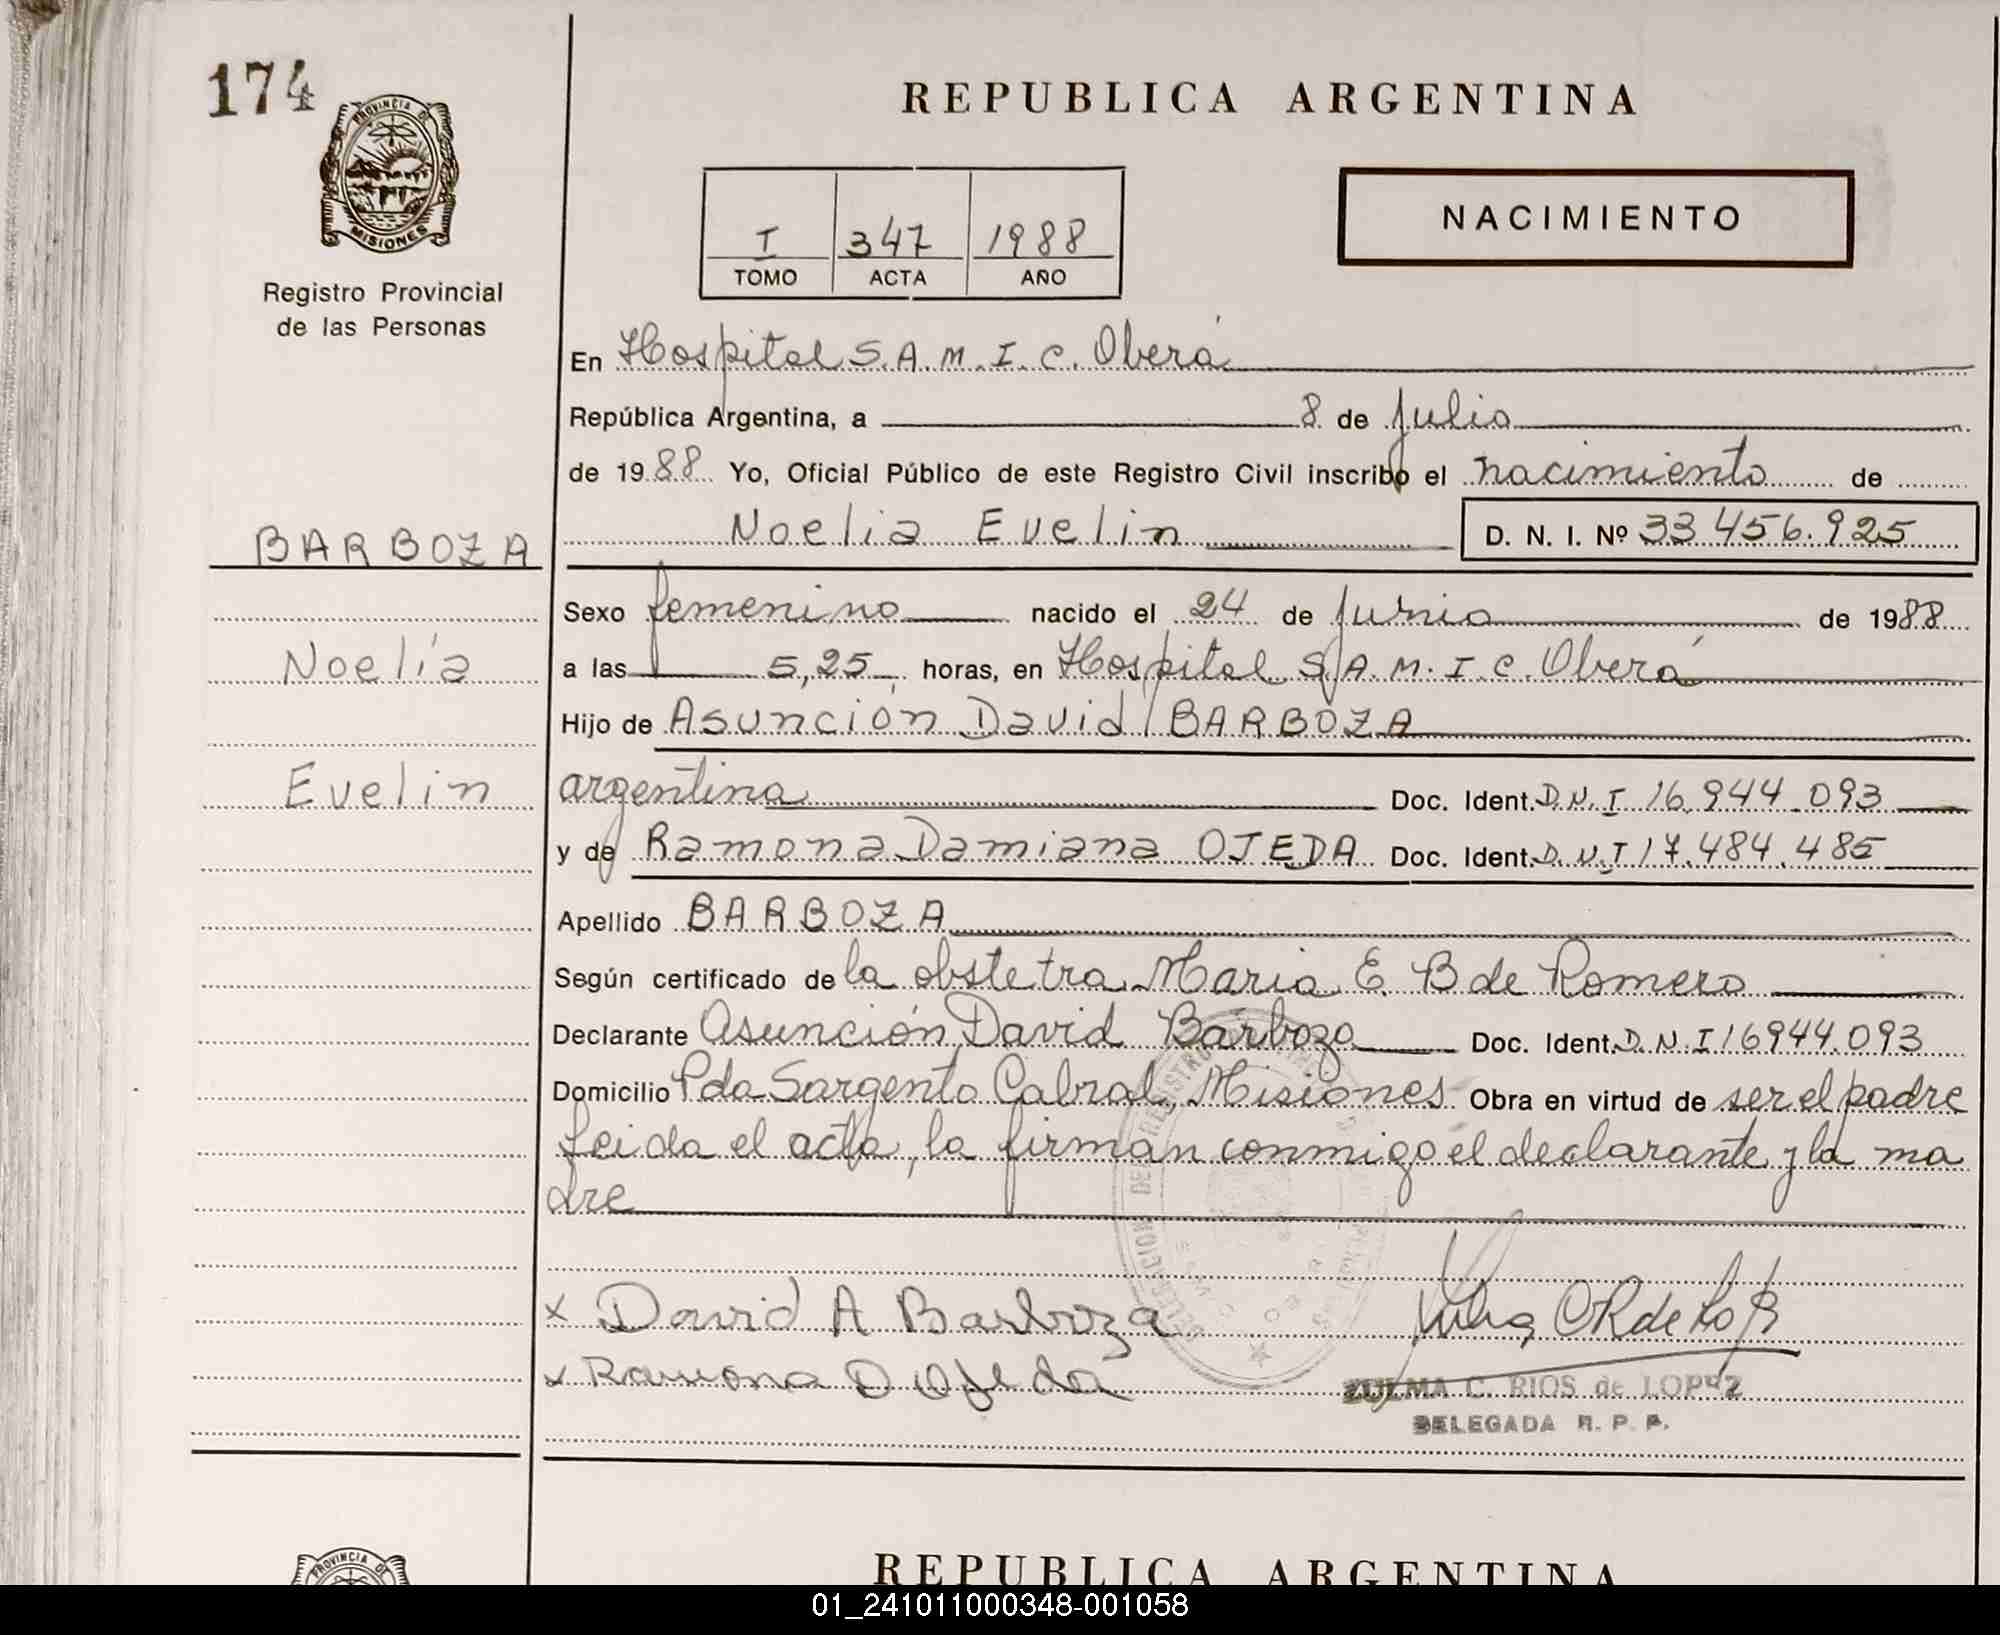 174
PROVINCIA DE
MISIONES
Registro Provincial
de las Personas
REPUBLICA ARGENTINA
I 347 1988
TOMO ACTA AÑO
NACIMIENTO
En Hospital S.A.M.I.C. Oberá
República Argentina, a 8 de julio
de 1988 Yo, Oficial Público de este Registro Civil inscribo el nacimiento de
BARBOZA
Noelia Evelin D. N. I. Nº 33456.925
Sexo femenino nacido el 24 de junio de 1988
Noelia
a las 5,25 horas, en Hospital S.A.M.I.C. Oberá
Hijo de Asunción David BARBOZA
Evelin
argentina Doc. Ident. D.N.I 16.944.093
y de Ramona Damiana OJEDA Doc. Ident. D.N.I 17.484.485
Apellido BARBOZA
Según certificado de la obstetra Maria E. B de Romero
Declarante Asunción David Barboza Doc. Ident. D.N.I 16944.093
Domicilio Pda Sargento Cabral, Misiones Obra en virtud de ser el padre
Leida el acta, la firman conmigo el declarante y la ma
dre
x David A Barboza
x Ramona D Ojeda
ZULMA C. RIOS de LOPEZ
DELEGADA R. P. P.
PROVINCIA DE
REPUBLICA ARGENTINA
01_241011000348-001058